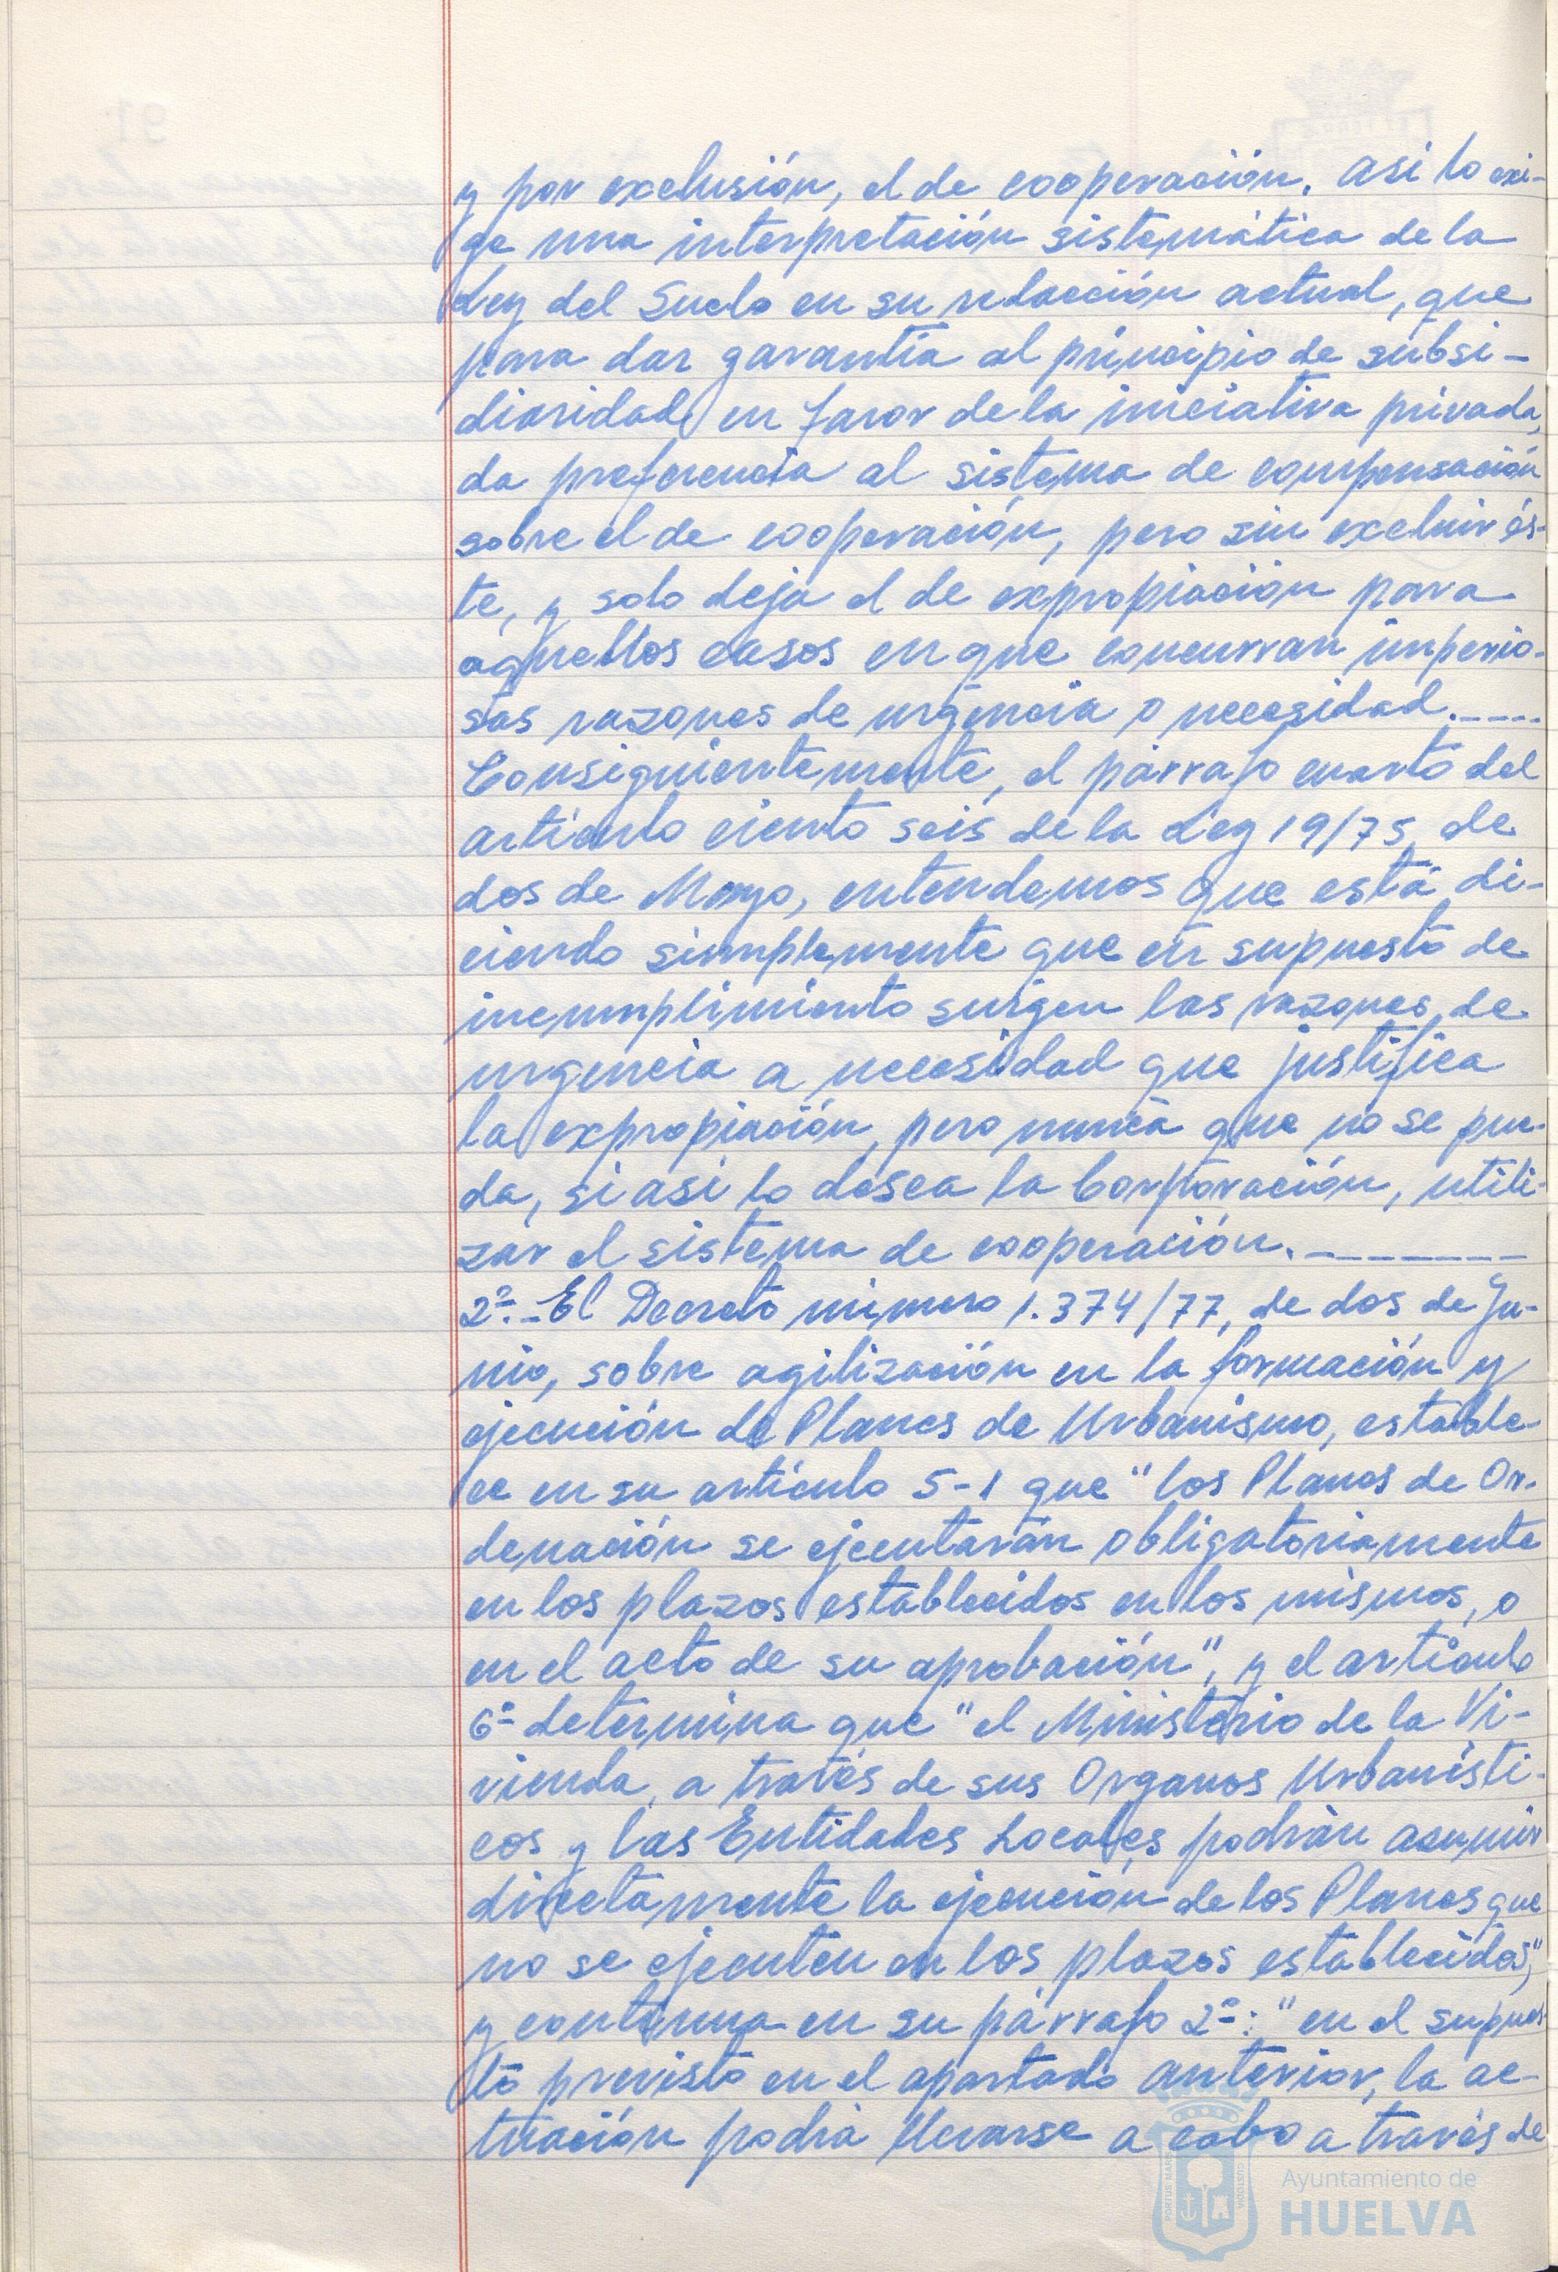 y por exclusión, el de cooperación. Asi lo exi-
ge una interpretación sistemática de la
Ley del Suelo en su redacción actual, que
para dar garantía al principio de subsi-
diaridad en favor de la iniciativa privada,
da preferencia al sistema de compensación
sobre el de cooperación, pero sin excluir és-
te, y solo deja el de expropiación para
aquellos casos en que concurran imperio-
sas razones de urgencia o necesidad.----
Consiguientemente, el párrafo cuarto del
artículo ciento seis de la Ley 19/75, de
dos de Mayo, entendemos que está di-
ciendo simplemente que en supuesto de
incumplimiento surgen las razones de
urgencia a necesidad que justifica
la expropiación, pero nunca que no se pue-
da, si asi lo desea la Corporación, utili-
zar el sistema de cooperación.-------
2º.-El Decreto número 1.374/77, de dos de Ju-
nio, sobre agilización en la formación y
ejecución de Planes de Urbanismo, estable-
ce en su artículo 5-1 que "los Planes de Or-
denación se ejecutarán obligatoriamente
en los plazos establecidos en los mismos, o
en el acto de su aprobación", y el artículo
6º determina que "el Ministerio de la Vi-
vienda, a través de sus Organos Urbanísti-
cos y las Entidades Locales podrán asumir
directamente la ejecución de los Planes que
no se ejecuten en los plazos establecidos",
y continua en su párrafo 2º: "en el supues-
to previsto en el apartado anterior, la ac-
tuación podrá llevarse a cabo a través de
PORTUS MARIS CUSTODIA
Ayuntamiento de
HUELVA